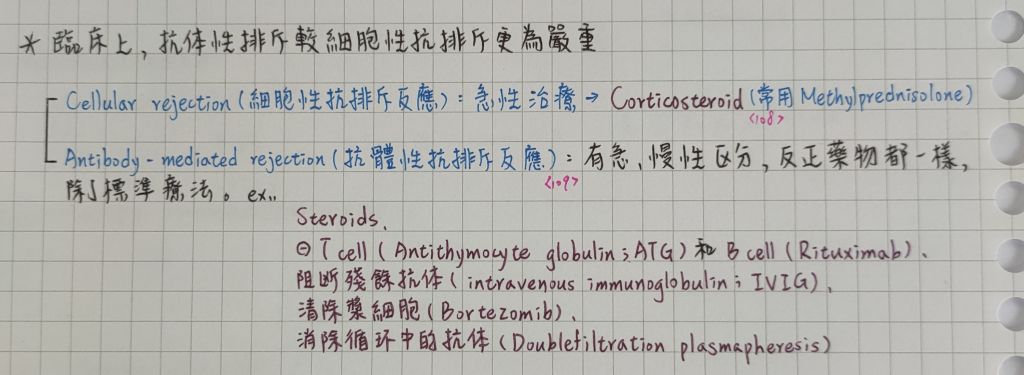 * 臨床上, 抗体性排斥較細胞性抗排斥更為嚴重
Cellular rejection (細胞性抗排斥反應) : 急性治療 → Corticosteroid (常用 Methylprednisolone)
<108>
Antibody-mediated rejection (抗體性抗排斥反應) : 有急、慢性区分, 反正藥物都一樣,
<109>
除了標準療法。ex..
Steroids、
⊖ T cell (Antithymocyte globulin ; ATG) 和 B cell (Rituximab)、
阻断殘餘抗体 (intravenous immunoglobulin ; IVIG)、
清除漿細胞 (Bortezomib)、
消除循环中的抗体 (Doublefiltration plasmapheresis)